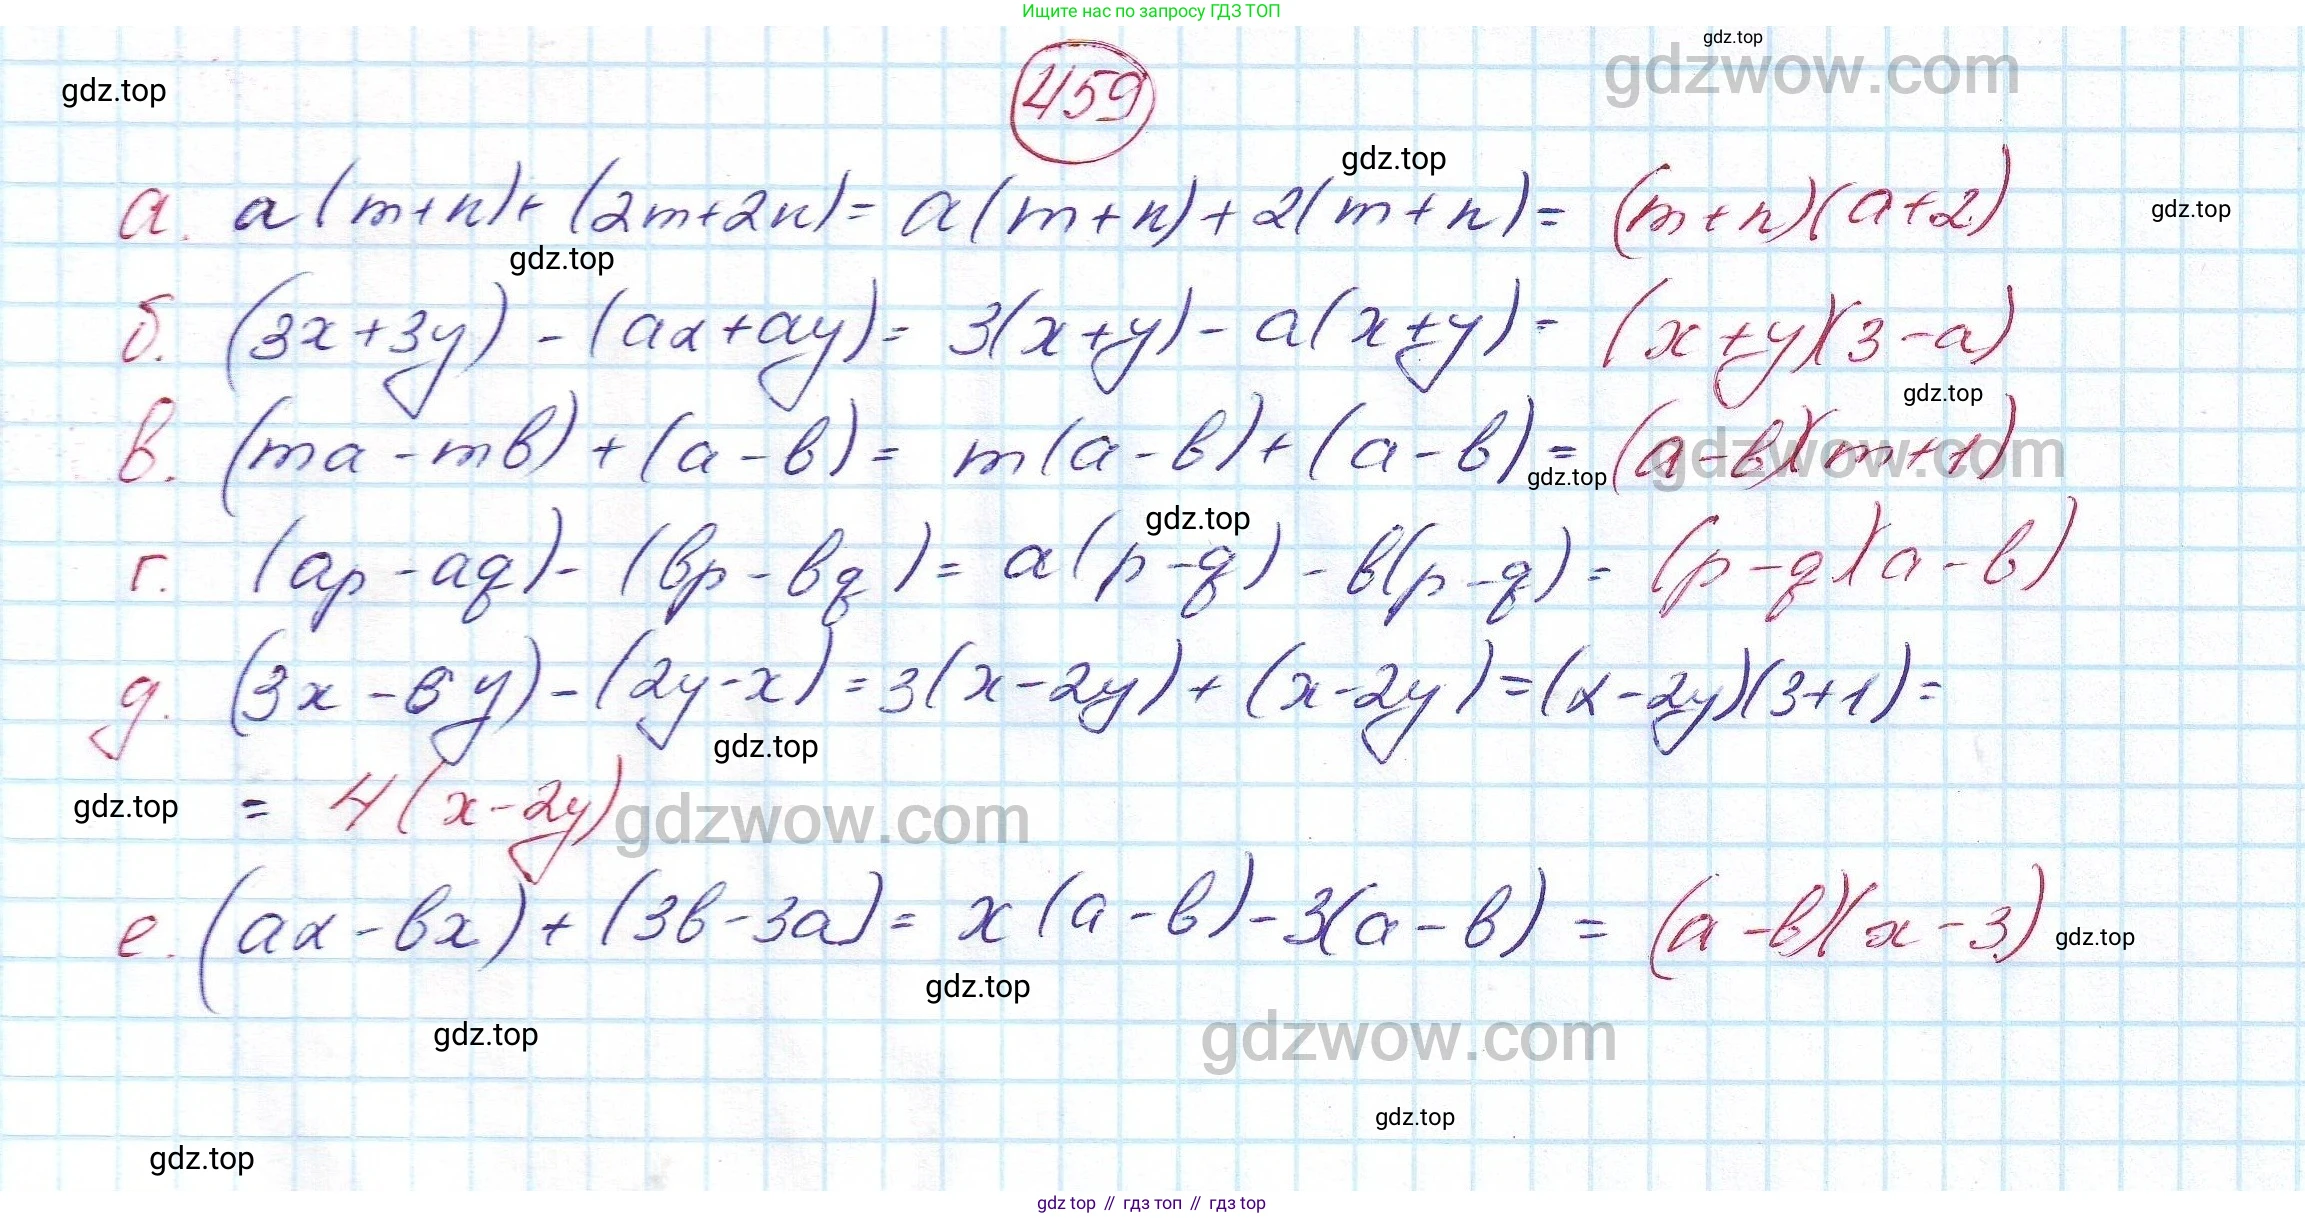 Ищите нас по запросу ГДЗ ТОП
gdz.top
gdzwow.com
gdz.top
459
gdz.top
а. a(m+n)+(2m+2n)= a(m+n)+2(m+n)= (m+n)(a+2)
gdz.top
gdz.top
б. (3x+3y)-(ax+ay)= 3(x+y)-a(x+y)= (x+y)(3-a)
gdz.top
в. (ma-mb)+(a-b)= m(a-b)+(a-b)= (a-b)(m+1)
gdzwow.com
gdz.top
gdz.top
г. (ap-aq)-(bp-bq)= a(p-q)-b(p-q)= (p-q)(a-b)
д. (3x-6y)-(2y-x)=3(x-2y)+(x-2y)=(x-2y)(3+1)=
gdz.top
gdz.top
= 4(x-2y)
gdzwow.com
е. (ax-bx)+(3b-3a)= x(a-b)-3(a-b)= (a-b)(x-3)
gdz.top
gdz.top
gdz.top
gdzwow.com
gdz.top
gdz.top
gdz.top // гдз топ // гдз top